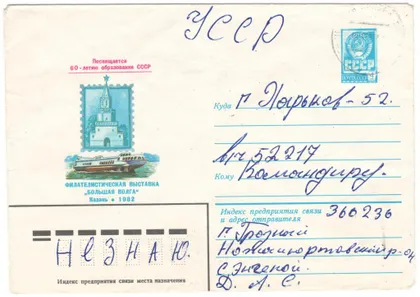 УССР
Посвящается
60-летию образования СССР
СССР
Куда г. Харьков - 52.
в/ч 52217
Кому Командиру.
ФИЛАТЕЛИСТИЧЕСКАЯ ВЫСТАВКА
"БОЛЬШАЯ ВОЛГА"
Казань 1982
Индекс предприятия связи и адрес отправителя 366236
г. Грозный
р-он
С. Энгеной.
Д. Л. С.
НЕЗНАЮ.
Индекс предприятия связи места назначения